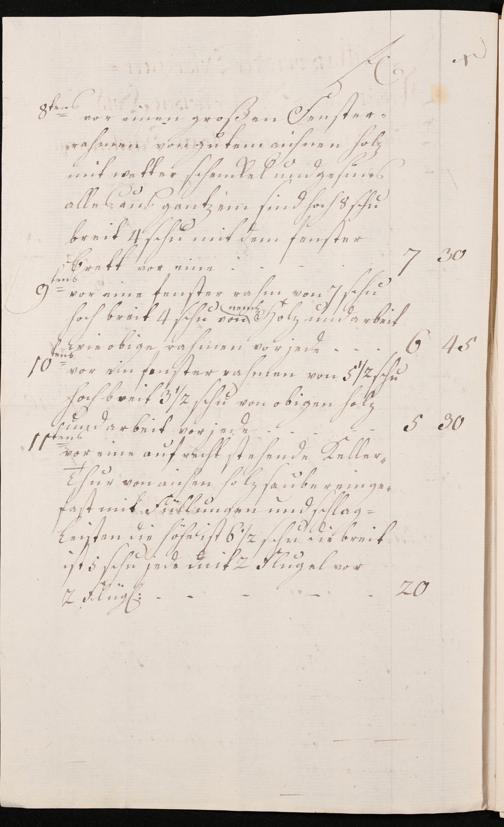 fl x
8tens vor einen großen Fenster=
rahmen von gutem aichnen holz
mit wetter schenkel und gesims
alles aus gantzem sind hoch 8 schu
breit 4 schu mit dem fenster
brett vor eine . . . . 7 30
9tens vor eine fenster rahm von 7 schu
hoch breit 4 schu von Holz und arbeit
wie obige rahmen vor jede - - - . 6 45
10tens vor ein fenster rahmen von 5 1/2 schu
hoch breit 3 1/2 schu von obigen holz
und arbeit vor jede . . . . 5 30
11tens vor eine aufrecht stehende Keller=
Thür von aichen holz sauber einge=
fast mit Füllungen und schlag=
Leisten die höhe ist 6 1/2 schu die breit
ist 5 schu jede mit 2 Flügel vor
2 Flüg: - - - - - 20